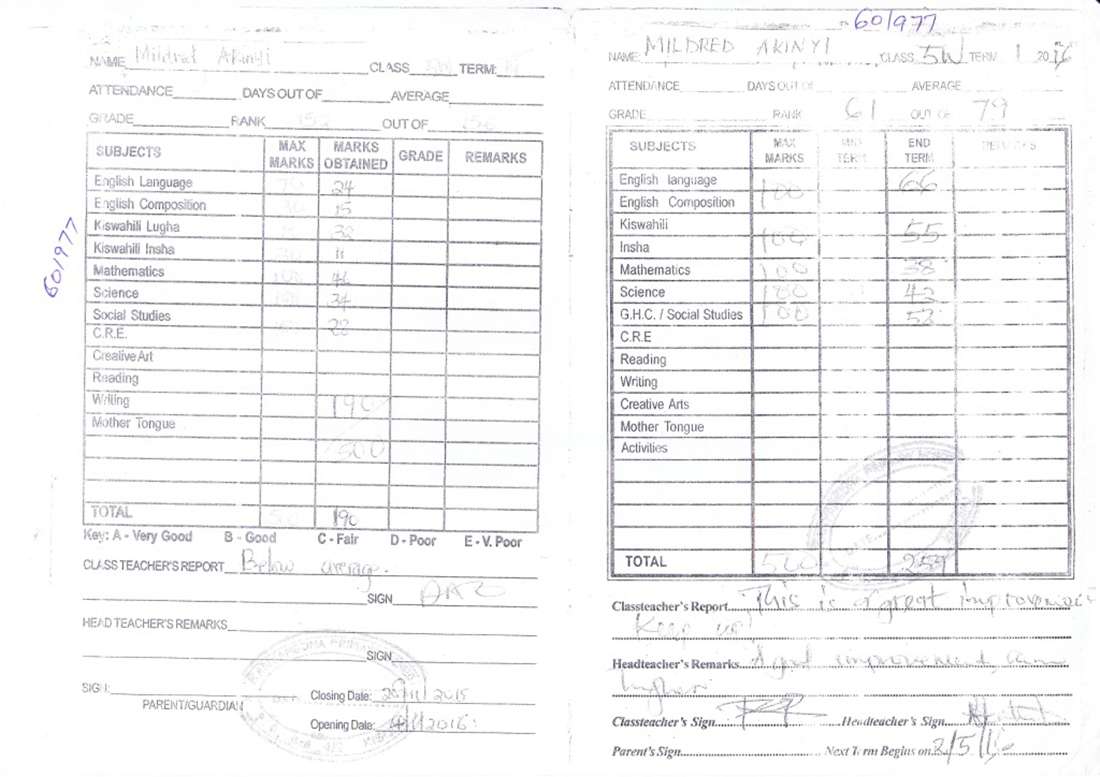 601977
NAME Mildrat Akinyi CLASS TERM:
ATTENDANCE DAYS OUT OF AVERAGE
GRADE RANK OUT OF
SUBJECTS MAX MARKS MARKS OBTAINED GRADE REMARKS
English Language 24
English Composition 15
Kiswahili Lugha 32
Kiswahili Insha 11
Mathematics
Science 34
Social Studies 22
C.R.E.
Creative Art
Reading
Writing 190
Mother Tongue
500
TOTAL 500 190
Key: A - Very Good B - Good C - Fair D - Poor E - V. Poor
CLASS TEACHER'S REPORT Below average.
SIGN
HEAD TEACHER'S REMARKS
SIGN
SIGN:
PARENT/GUARDIAN
Closing Date: /11/2015
Opening Date: /1/2016
601977
NAME: MILDRED AKINYI CLASS 5W TERM 1 2016
ATTENDANCE DAYS OUT OF AVERAGE
GRADE RANK 61 OUT OF 79
SUBJECTS MAX MARKS MID TERM END TERM REMARKS
English language 100 66
English Composition
Kiswahili 100 55
Insha
Mathematics 100 38
Science 100 42
G.H.C. / Social Studies 100 52
C.R.E
Reading
Writing
Creative Arts
Mother Tongue
Activities
TOTAL 500 259
Classteacher's Report This is a great improvement
Keep up!
Headteacher's Remarks A good improvement, aim
higher
Classteacher's Sign Headteacher's Sign
Parent's Sign Next Term Begins on 2/5/16